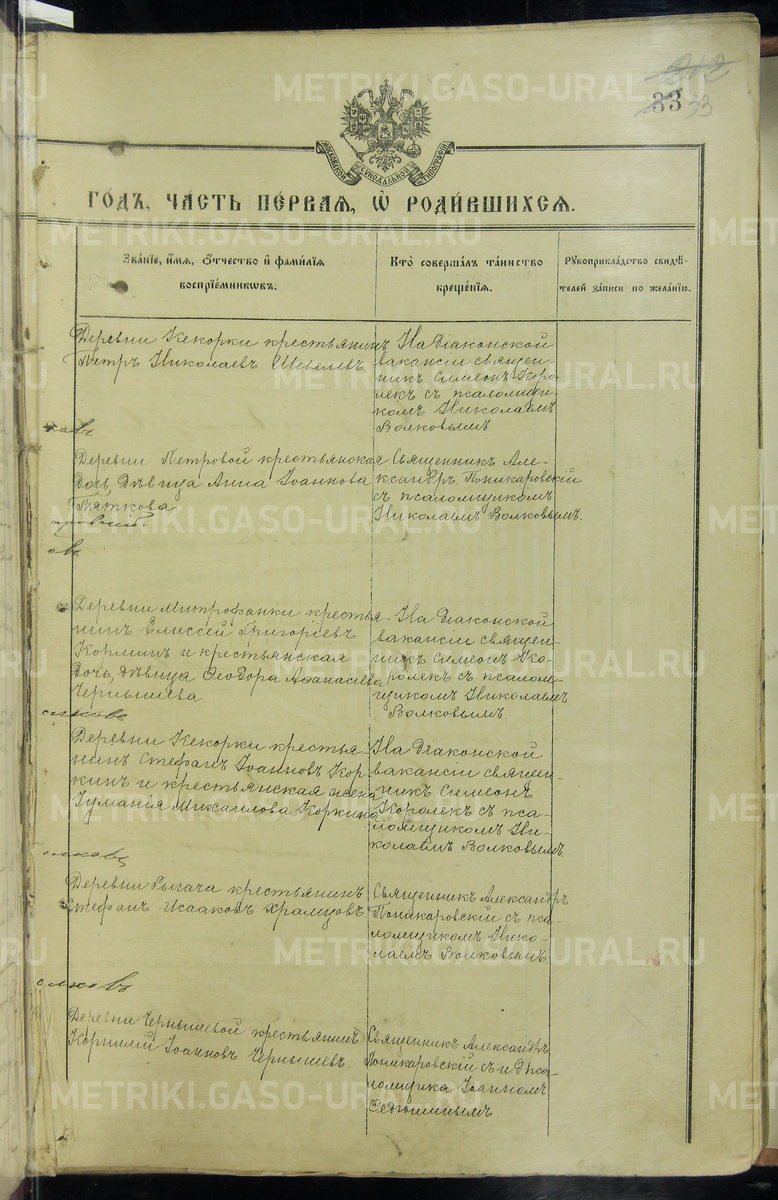 33 33
МОСКОВСКОЙ СѴНОДАЛЬНОЙ ТИПОГРАФІИ
ГОДЪ, ЧАСТЬ ПЕРВАЯ, Ѽ РОДИВШИХСЯ.
Званіе, имя, отчество и фамилія
воспріемниковъ.
Кто совершалъ таинство
крещенія.
Рукоприкладство свидѣ-
телей записи по желанію.
Деревни Кекорки крестьянинъ
Петръ Николаевъ Шевелевъ
На діаконской
вакансіи священ-
никъ Симеонъ Коро-
лекъ съ псаломщи-
комъ Николаемъ
Волковымъ
Деревни Петровой крестьянская
дочь, дѣвица Анна Іоаннова
Пяткова
Священникъ Але-
ксандръ Поникаровскій
съ псаломщикомъ
Николаемъ Волковымъ.
Деревни Митрофанки крестья-
нинъ Елиссей Григоріевъ
Кормин и крестьянская
дочь, дѣвица Ѳеодора Аѳанасіева
Чернышева
На діаконской
вакансіи священ-
никъ Симеонъ Ко-
ролекъ съ псалом-
щикомъ Николаемъ
Волковымъ
Деревни Кекорки крестья-
нинъ Стефанъ Іоанновъ Кор-
кинъ и крестьянская жена
Михаилова Коркина
На діаконской
вакансіи священ-
никъ Симеонъ
Королекъ съ пса-
ломщикомъ Ни-
колаемъ Волковымъ.
Деревни Рычача крестьянинъ
Стефанъ Исааковъ Храмцовъ
Священникъ Александръ
Поникаровскій съ пса-
ломщикомъ Нико-
лаемъ Волковымъ
Деревни Чернышевой крестьянинъ
Корнилій Іоанновъ Чернышевъ.
Священникъ Александръ
Поникаровскій съ и. д. пса-
ломщика Іоанномъ
Ѳедюшинымъ.
METRIKI.GASO-URAL.RU